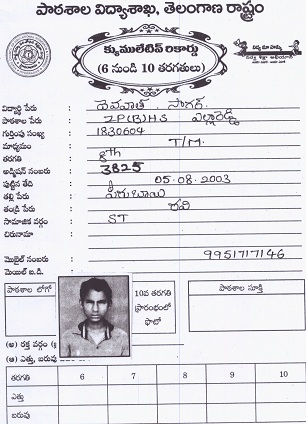 పాఠశాల విద్యాశాఖ, తెలంగాణ రాష్ట్రం
క్యుములేటివ్ రికార్డు
(6 నుండి 10 తరగతులు)
విద్యార్థి పేరు : దేవసోత్ సాగర్
పాఠశాల పేరు : ZP(B)HS ఎల్లారెడ్డి
గుర్తింపు సంఖ్య : 1830604
మాధ్యమం : T/M.
తరగతి : 8th
అడ్మిషన్ నంబరు : 3825
పుట్టిన తేది : 05.08.2003
తల్లి పేరు :
తండ్రి పేరు : రవి
సామాజిక వర్గం : ST
చిరునామా :
మొబైల్ నంబరు : 9951717146
మెయిల్ ఐ.డి. :
పాఠశాల లోగో
10వ తరగతి ప్రారంభంలో ఫొటో
పాఠశాల సూక్తి
(అ) రక్త వర్గం
(ఆ) ఎత్తు, బరువు
తరగతి 6 7 8 9 10
ఎత్తు
బరువు